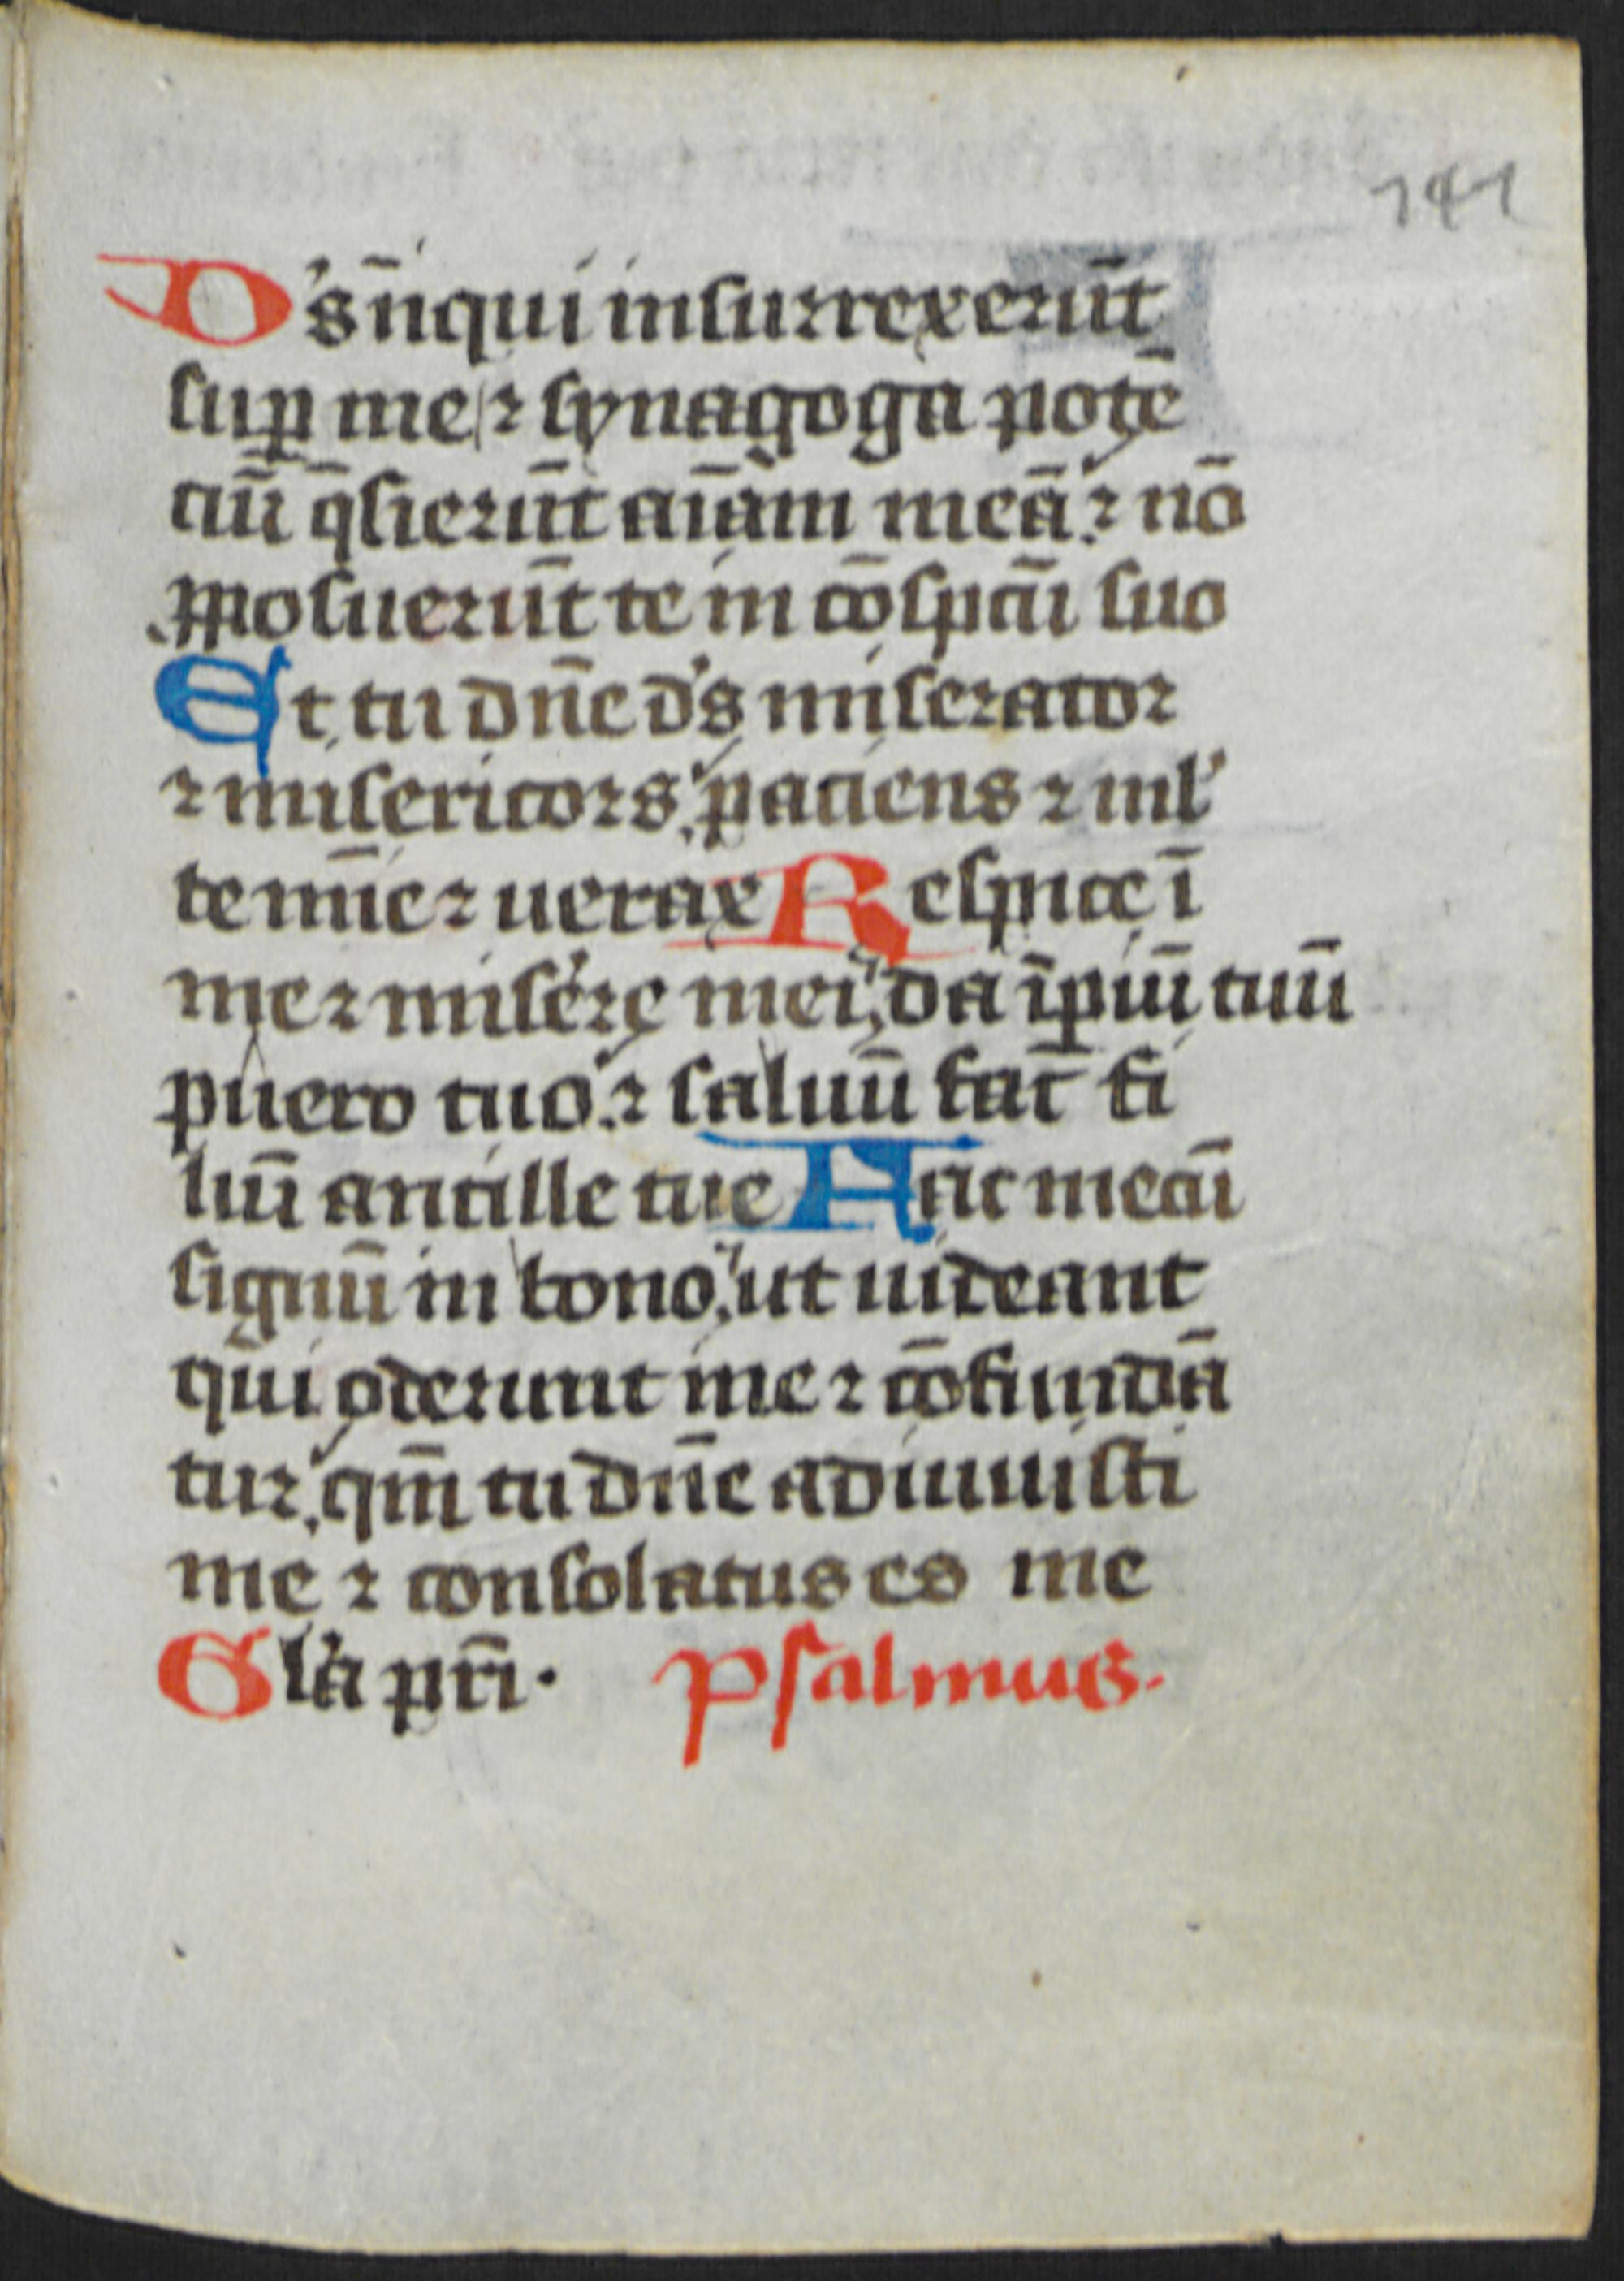 141
D's n̄ qui insurrexerūt
suꝑ me ⁊ synagoga potē
ciū q̄sierūt aīam meā ⁊ nō
Proposuerūt te in cōspcū suo
Et tu dn̄e d's miserator
⁊ misericors paciens ⁊ ml'
te mīe ⁊ uerax Respice ī
me ⁊ misere mei da īpiū tuū
puero tuo ⁊ saluū fac fi
liū ancille tue Fac mecū
signū in bono ut uideant
qui oderunt me ⁊ cōfundā
tur qm̄ tu dn̄e adiuuisti
me ⁊ consolatus es me
Gl'a pr̄i · Psalmus.